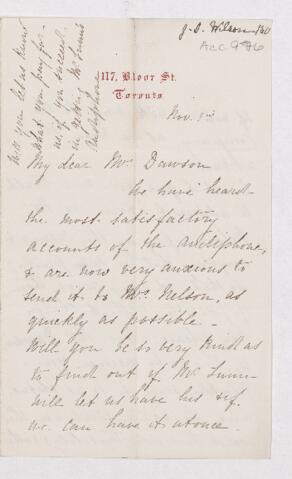 J. S. Wilson
Acc 976
Will you let us know
what you pay for
us if you succeed
in getting Mr Lunn's
Audiphone
117, Bloor St.
Toronto
Nov. 3rd
My dear Mr. Dawson
We have heard
the most satisfactory
accounts of the audiphone,
& are now very anxious to
send it to Mr. Nelson, as
quickly as possible.
Will you be so very kind as
to find out if Mr Lunn
will let us have his if
we can have it at once.